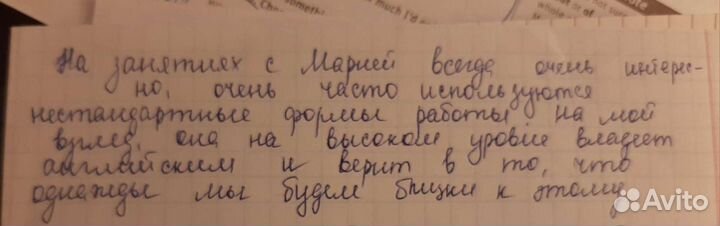 some
Cho
much I'd
not sur
at or of
whole
На занятиях с Марией всегда очень интерес-
но, очень часто используются
нестандартные формы работы На мой
взгляд, она на высоком уровне владеет
английским и верит в то, что
однажды мы будем близки к этому
Avito